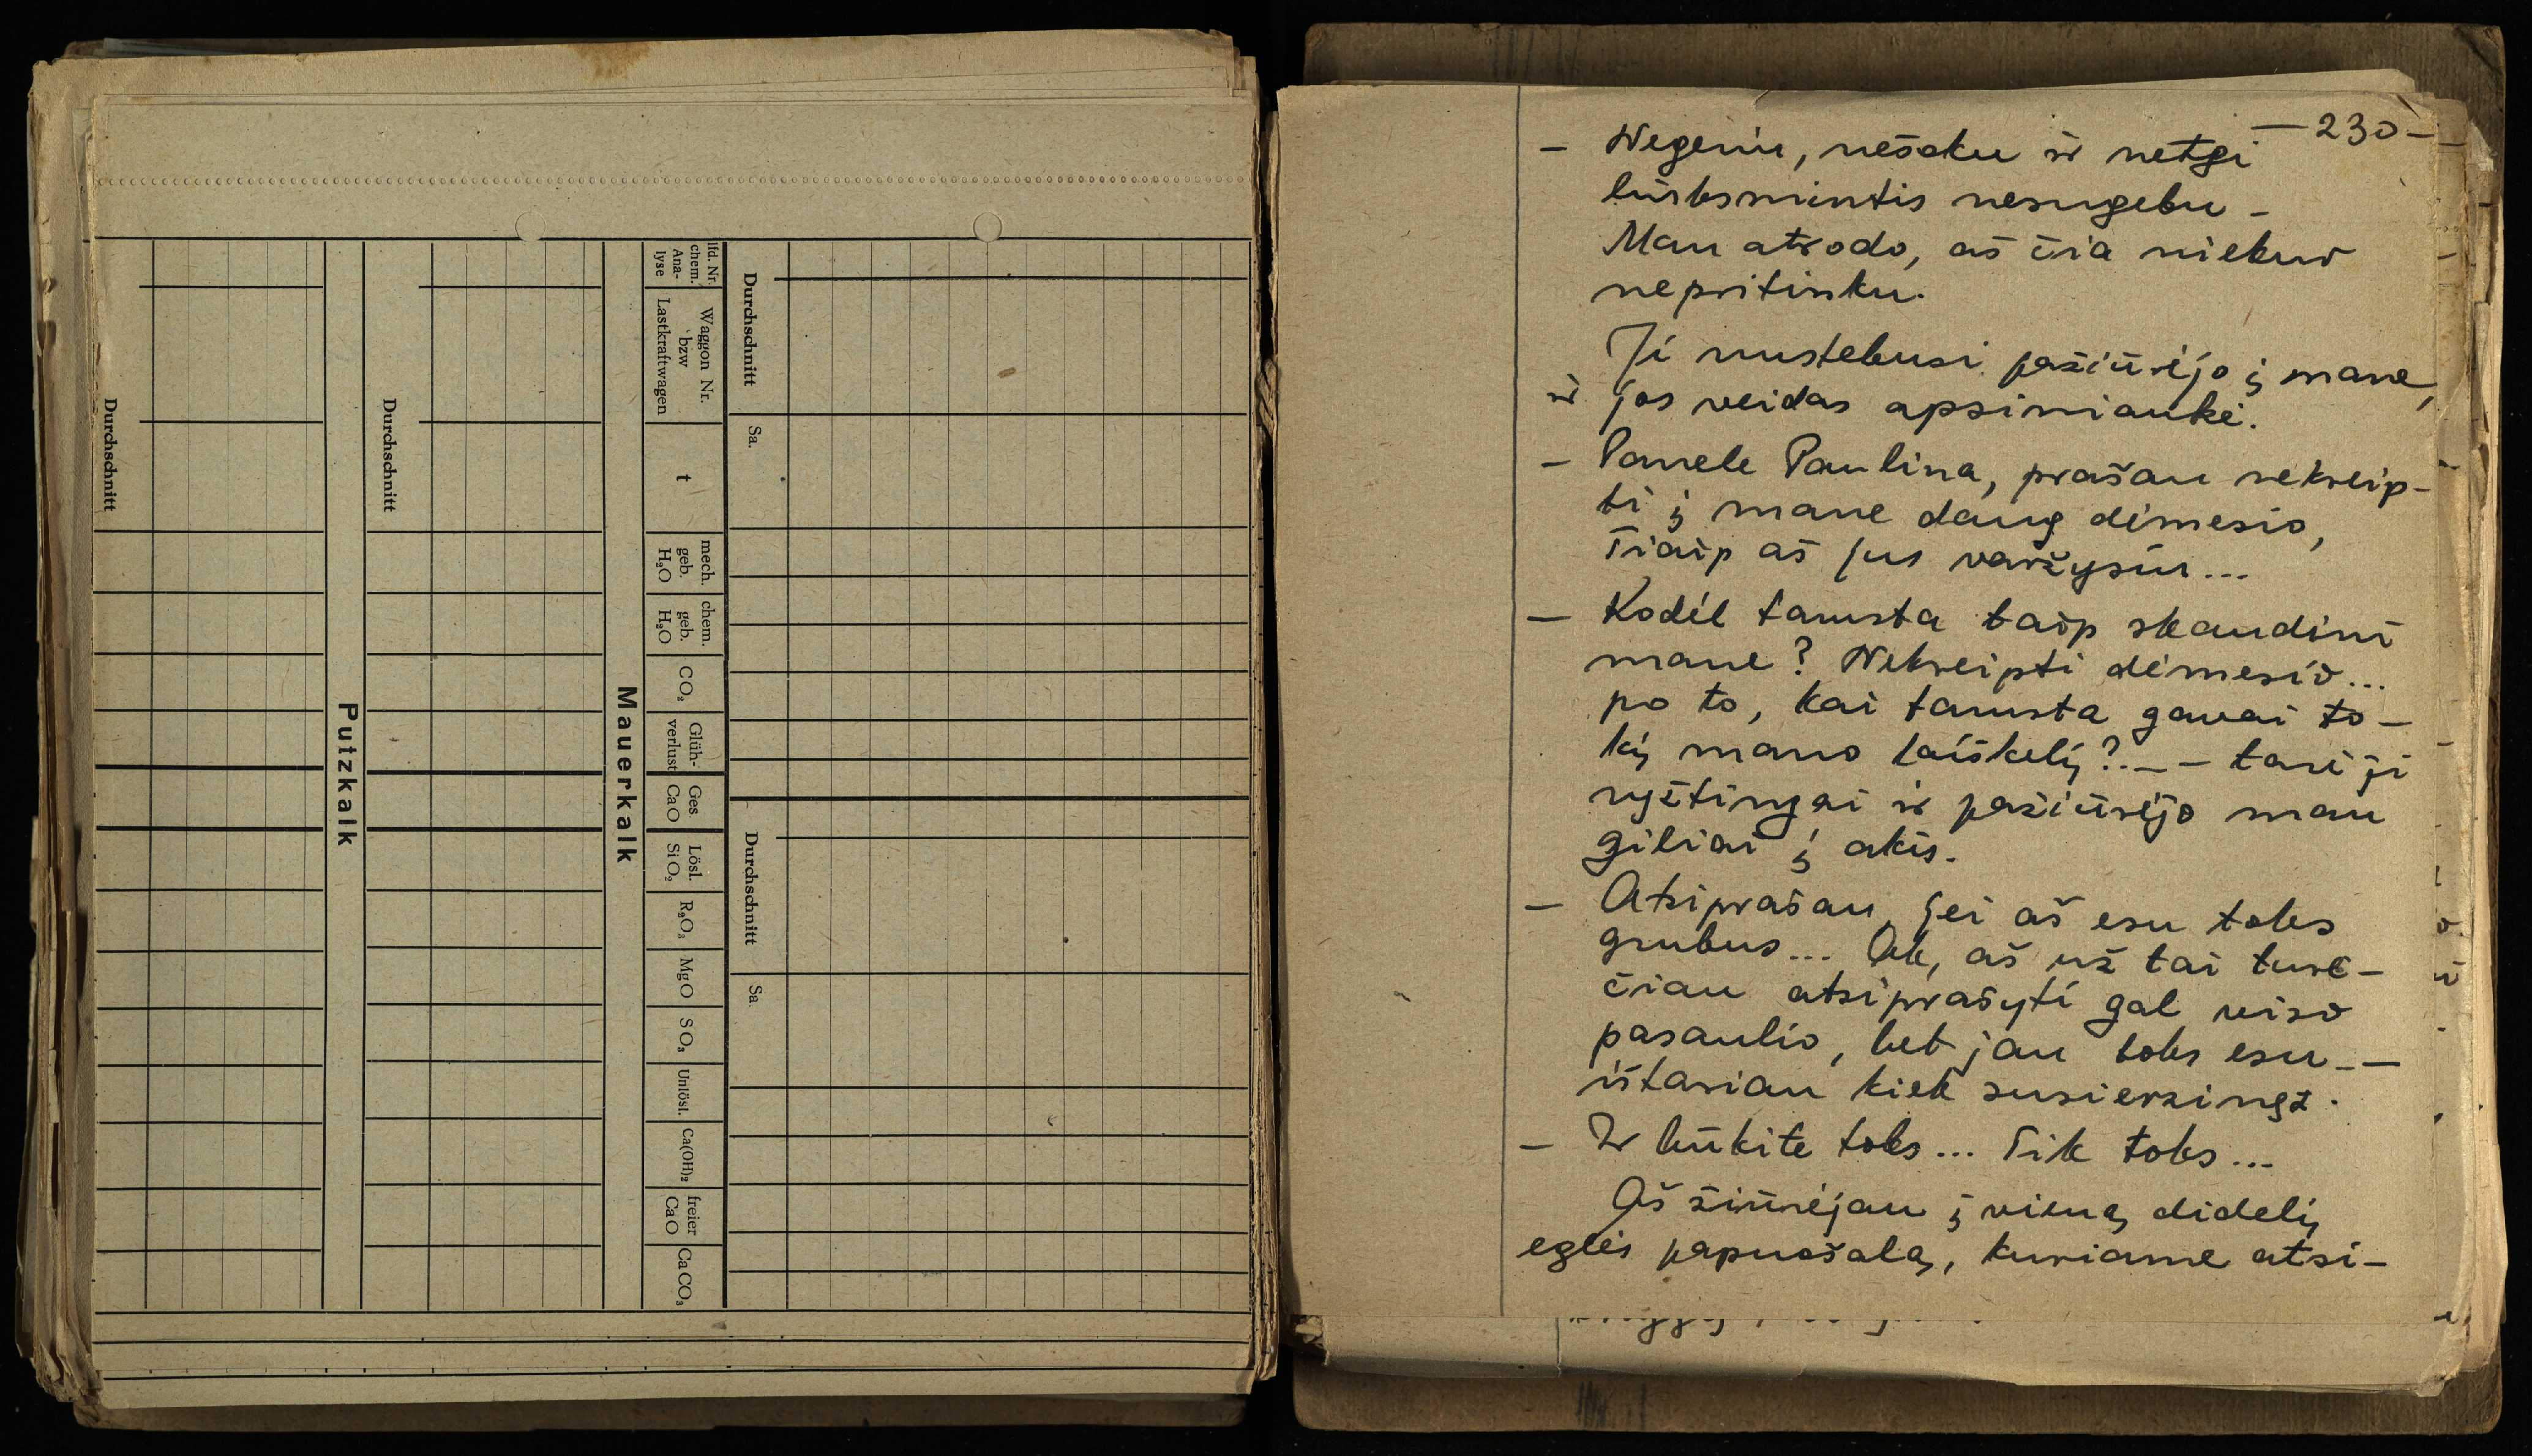 Durchschnitt
Putzkalk
Durchschnitt
Mauerkalk
lfd. Nr.
chem.
Ana-
lyse
Waggon Nr.
bzw
Lastkraftwagen
t
mech.
geb.
H₂O
chem.
geb.
H₂O
CO₂
Glüh-
verlust
Ges
CaO
Lösl.
SiO₂
R₂O₃
MgO
SO₃
Unlösl.
Ca(OH)₂
freier
CaO
CaCO₃
Durchschnitt
Sa.
Durchschnitt
Sa.
— 230 —
– Negeriu, nešoku ir netgi
linksmintis nesugebu –
Man atrodo, aš čia niekur
nepritinku.
Ji nustebusi pažiūrėjo į mane,
ir jos veidas apsiniaukė.
– Panele Paulina, prašau nekreip-
ti į mane daug dėmesio,
šiaip aš jus varžysiu...
– Kodėl tamsta taip skaudini
mane? Nekreipti dėmesio...
po to, kai tamsta gavai to-
kį mano laiškelį?.. – tarė ji
ryžtingai ir pažiūrėjo man
giliai į akis.
– Atsiprašau, jei aš esu toks
grubus... Ak, aš už tai turė-
čiau atsiprašyti gal viso
pasaulio, bet jau toks esu.. –
ištariau kiek susierzinęs.
– Ir būkite toks... Tik toks...
Aš žiūrėjau į vieną didelį
eglės papuošalą, kuriame atsi-